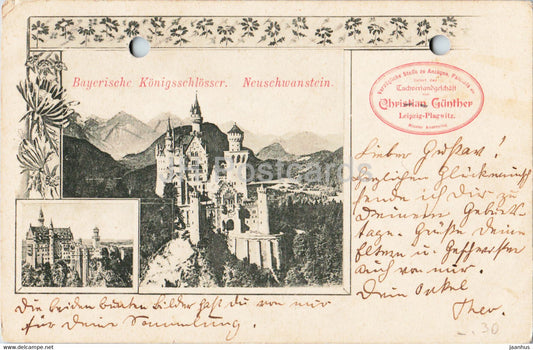 Bayerische Königsschlösser. Neuschwanstein.
Vorzügliche Stoffe zu Anzügen, Paletots
Tuchversandgeschäft
Christian Günther
Leipzig-Plagwitz.
Lieber Gustav!
Herzlichen Glückwunsch
sende ich Dir zu
Deinem Geburts-
tage. Grüße Deine
Eltern u. Geschwister
auch von mir.
Dein Onkel
Theo.
Die beiden bunten Bilder hast Du von mir
für Deine Sammlung.
-.30
Postcards
www.jaahus.com
jaahus